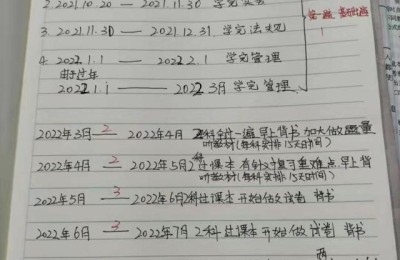 2. 2021.10.20 — 2021.11.30 学完实务
3. 2021.11.30 — 2021.12.31 学完法规
4. 2022.1.1 — 2022.2.1 学完管理
由于过年
2022.1.1 — 2022 3月 学完管理
2022年3月 2 2022年4月 2科全过一遍 早上背书 加大做题量
听教材(每科安排15天时间)
2022年4月 2 2022年5月 2科过课本 有针对复习重难点 早上背
听教材(每科安排15天时间)
2022年5月 3 2022年6月 2科过课本 开始做试卷 背书
2022年6月 3 2022年7月 2科过课本 开始做试卷 背书
两